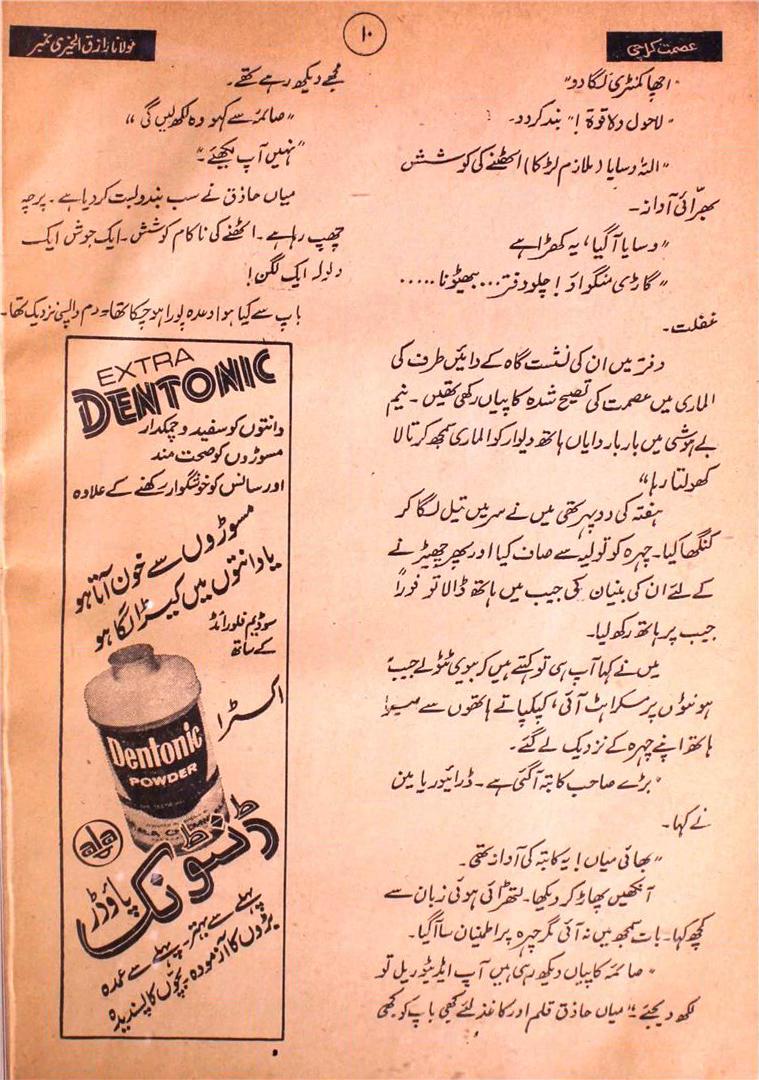 عصمت کراچی
۱۰
مولانا رازق الخیری نمبر
"اچھا کمنٹری لگا دو"
"لاحول ولا قوۃ!" بند کر دو۔
"اللہ وسایا (ملازم لڑکا) اٹھنے کی کوشش
بھرّائی آواز۔
"وسایا آگیا، یہ کھڑا ہے
"گاڑی منگواؤ! چلو دفتر... بچھونا.....
غفلت۔
دفتر میں ان کی نشست گاہ کے دائیں طرف کی
الماری میں عصمت کی تصیح شدہ کاپیاں رکھی تھیں۔ نیم
بے ہوشی میں بار بار دایاں ہاتھ دیوار کو الماری سمجھ کر تالا
کھولتا رہا"
ہفتہ کی دوپہر تھی میں نے سر میں تیل لگا کر
کنگھا کیا۔ چہرہ کو تولیہ سے صاف کیا اور پھر چھیڑنے
کے لئے ان کی بنیان کی جیب میں ہاتھ ڈالا تو فوراً
جیب پر ہاتھ رکھ لیا۔
میں نے کہا آپ ہی تو کہتے ہیں کہ بیوی ٹٹولے جیب
ہونٹوں پر مسکراہٹ آئی، کپکپاتے ہاتھوں سے میرا
ہاتھ اپنے چہرہ کے نزدیک لے گئے۔
"بڑے صاحب کا بتہ آگئی ہے۔ ڈرائیور یامین
نے کہا۔
"بھائی میاں! یہ کابتہ کی آواز تھی۔
آنکھیں پھاڑ کر دیکھا۔ لتھڑائی ہوئی زبان سے
کچھ کہا۔ بات سمجھ میں نہ آئی مگر چہرہ پر اطمنان سا آگیا۔
"صائمہ کاپیاں دیکھ رہی ہیں آپ ایڈیٹوریل تو
لکھ دیجئے۔" میاں حاذق قلم اور کاغذ لئے کبھی باپ کو کبھی
مجھے دیکھ رہے تھے۔
"صائمہ سے کہو وہ لکھ لیں گی"
"نہیں آپ لکھیئے۔"
میاں حاذق نے سب بندوبست کر دیا ہے۔ پرچہ
چھپ رہا ہے۔ اٹھنے کی ناکام کوشش۔ ایک جوش ایک
ولولہ ایک لگن!
باپ سے کیا ہوا وعدہ پورا ہو چکا تھا۔ دم واپسی نزدیک تھا۔
EXTRA
DENTONIC
دانتوں کو سفید و چمکدار
مسوڑوں کو صحت مند
اور سانس کو خوشگوار رکھنے کے علاوہ
مسوڑوں سے خون آتا ہو
یا دانتوں میں کیڑا لگا ہو
سوڈیم فلورائڈ
کے ساتھ
اکسٹرا
Dentonic
POWDER
ala
ڈنٹونک
پاؤڈر
پہلے سے بہتر۔ پہلے سے عمدہ
بڑوں کا آزمودہ۔ بچوں کا پسندیدہ